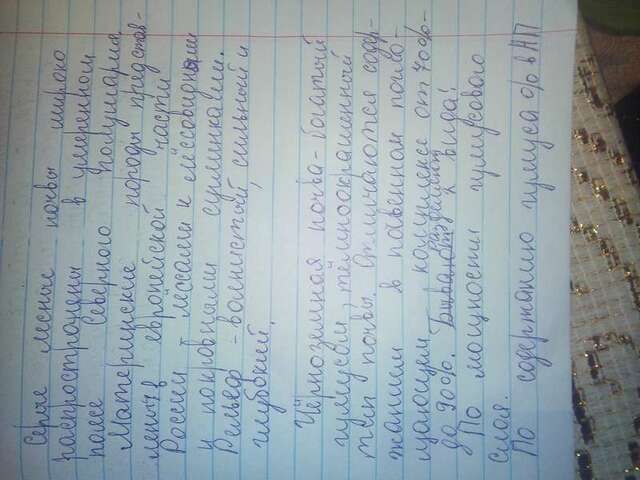 Серые лесные почвы широко
распространены в умеренном
поясе Северного полушария.
Материнские породы представ-
лены в европейской части
России лёссами и лёссовидными
и покровными суглинками.
Рельеф - волнистый, сильный и
глубокий.
Чёрноземная почва - богатый
гумусом, темноокрашенный
тип почвы. Отличаются содер-
жанием в почвенном погло-
щающем комплексе от 70%-
до 90%. разделяют 2 вида:
По мощности гумусового
слоя.
По содержанию гумуса % в АП